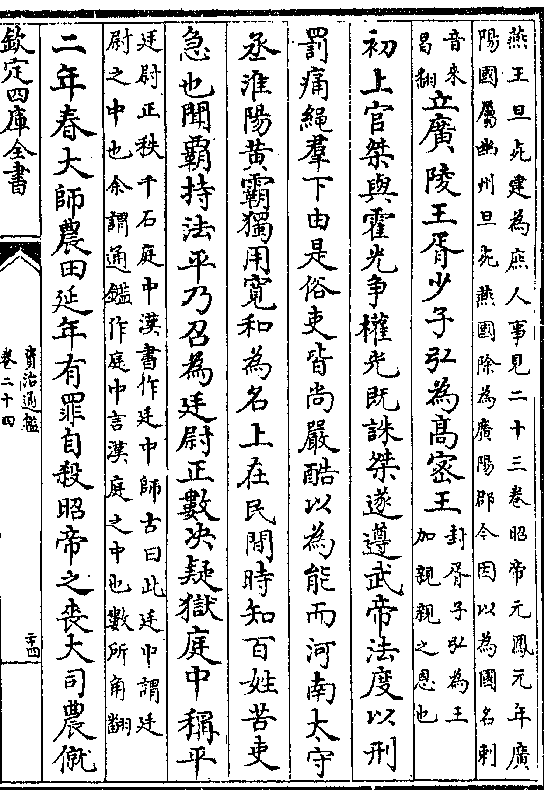 燕王旦死建為庶人事見二十三卷昭帝元鳳元年廣
陽國屬幽州旦死燕國除為廣陽郡今因以為國名剌
音來
曷翻
立廣陵王胥少子弘為髙密王
封胥子弘為王
加親親之恩也
初上官桀與霍光争權光既誅桀遂遵武帝法度以刑
罰痛䋲羣下由是俗吏皆尚嚴酷以為能而河南太守
丞淮陽黄霸獨用寛和為名上在民間時知百姓苦吏
急也聞霸持法平乃召為廷尉正數决疑獄庭中稱平
廷尉正秩千石庭中漢書作廷中師古曰此廷中謂廷
尉之中也余謂通鑑作庭中言漢庭之中也數所角翻
二年春大師農田延年有罪自殺昭帝之喪大司農僦
欽定四庫全書
資治通鑑
卷二十四
二十四